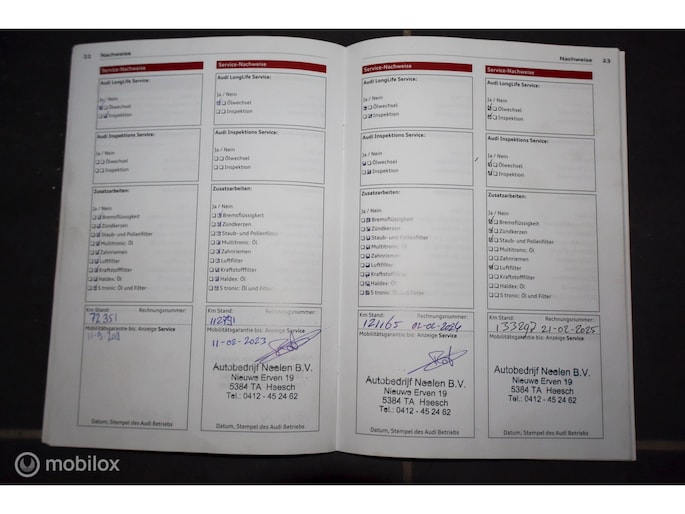 22 Nachweise
Service-Nachweise
Audi LongLife Service:
Ja / Nein
Ölwechsel
Inspektion
Audi Inspektions Service:
Ja / Nein
Ölwechsel
Inspektion
Zusatzarbeiten:
Ja / Nein
Bremsflüssigkeit
Zündkerzen
Staub- und Pollenfilter
Multitronic: Öl
Zahnriemen
Luftfilter
Kraftstofffilter
Haldex: Öl
S tronic: Öl und Filter
Km Stand: Rechnungsnummer:
72351
Mobilitätsgarantie bis: Anzeige Service
Datum, Stempel des Audi Betriebs
Service-Nachweise
Audi LongLife Service:
Ja / Nein
Ölwechsel
Inspektion
Audi Inspektions Service:
Ja / Nein
Ölwechsel
Inspektion
Zusatzarbeiten:
Ja / Nein
Bremsflüssigkeit
Zündkerzen
Staub- und Pollenfilter
Multitronic: Öl
Zahnriemen
Luftfilter
Kraftstofffilter
Haldex: Öl
S tronic: Öl und Filter
Km Stand: Rechnungsnummer:
Mobilitätsgarantie bis: Anzeige Service
11-02-2023
Autobedrijf Neelen B.V.
Nieuwe Erven 19
5384 TA Heesch
Tel.: 0412 - 45 24 62
Datum, Stempel des Audi Betriebs
Nachweise 23
Service-Nachweise
Audi LongLife Service:
Ja / Nein
Ölwechsel
Inspektion
Audi Inspektions Service:
Ja / Nein
Ölwechsel
Inspektion
Zusatzarbeiten:
Ja / Nein
Bremsflüssigkeit
Zündkerzen
Staub- und Pollenfilter
Multitronic: Öl
Zahnriemen
Luftfilter
Kraftstofffilter
Haldex: Öl
S tronic: Öl und Filter
Km Stand: Rechnungsnummer:
121165 02-02-2024
Mobilitätsgarantie bis: Anzeige Service
Autobedrijf Neelen B.V.
Nieuwe Erven 19
5384 TA Heesch
Tel.: 0412 - 45 24 62
Datum, Stempel des Audi Betriebs
Service-Nachweise
Audi LongLife Service:
Ja / Nein
Ölwechsel
Inspektion
Audi Inspektions Service:
Ja / Nein
Ölwechsel
Inspektion
Zusatzarbeiten:
Ja / Nein
Bremsflüssigkeit
Zündkerzen
Staub- und Pollenfilter
Multitronic: Öl
Zahnriemen
Luftfilter
Kraftstofffilter
Haldex: Öl
S tronic: Öl und Filter
Km Stand: Rechnungsnummer:
133297 21-02-2025
Mobilitätsgarantie bis: Anzeige Service
Autobedrijf Neelen B.V.
Nieuwe Erven 19
5384 TA Heesch
Tel.: 0412 - 45 24 62
Datum, Stempel des Audi Betriebs
mobilox